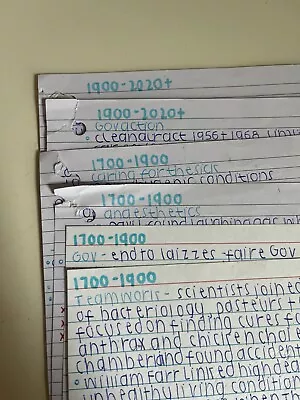 1900-2020+
1900-2020+
Gov action
• clean air act 1956+1968, Unhy
1700-1900
caring for the sick
conditions
1700-1900
anaesthetics
found laughing gas wh
1700-1900
Gov - end to laizzes-faire Gov
1700-1900
Teamwork - scientists joined
of bacteriology, pasteurs t
focused on finding cures fo
anthrax and chicken chol
chamberland found accident
• William Farr linked high de
unhealthy living condition